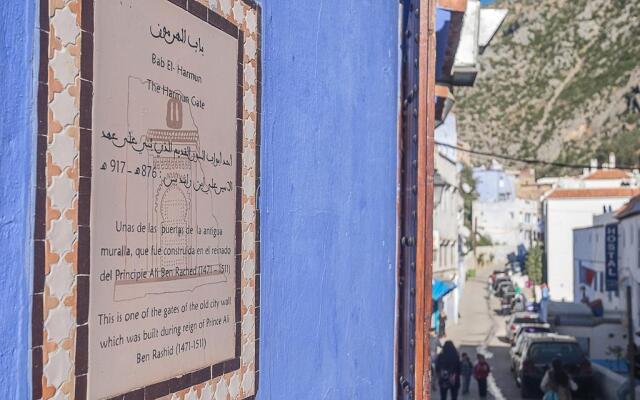 باب الهرمون
Bab El- Harmun
The Harmun Gate
أحد أبواب السور القديم الذي بني على عهد
876 هـ - 917 هـ
Unas de las puertas de la antigua
muralla, que fue construida en el reinado
del Principie Ali Ben Rached (1471 - 1511)
This is one of the gates of the old city wall
which was built during reign of Prince Ali
Ben Rashid (1471-1511)
HOSTAL